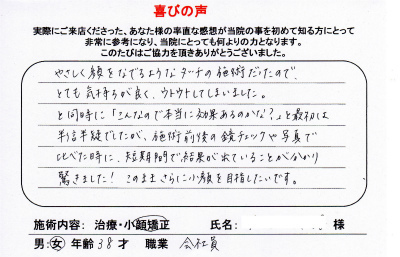 喜びの声
実際にご来店くださった、あなた様の率直な感想が当院の事を初めて知る方にとって
非常に参考になり、当院にとっても何よりの力となります。
このたびはご協力を頂きありがとうございました。
やさしく顔をなでるようなタッチの施術だけなので、
とても気持ちが良く、ウトウトしてしまいました。
と同時に「こんなので本当に効果あるのかな?」と最初は
半信半疑でしたが、施術前後の鏡チェックや写真で
比べた時に、短期間で結果が出ていることが分かり
驚きました!このままさらに小顔を目指したいです。
施術内容: 治療・小顔矯正 氏名: 様
男・女 年齢 38 才 職業 会社員